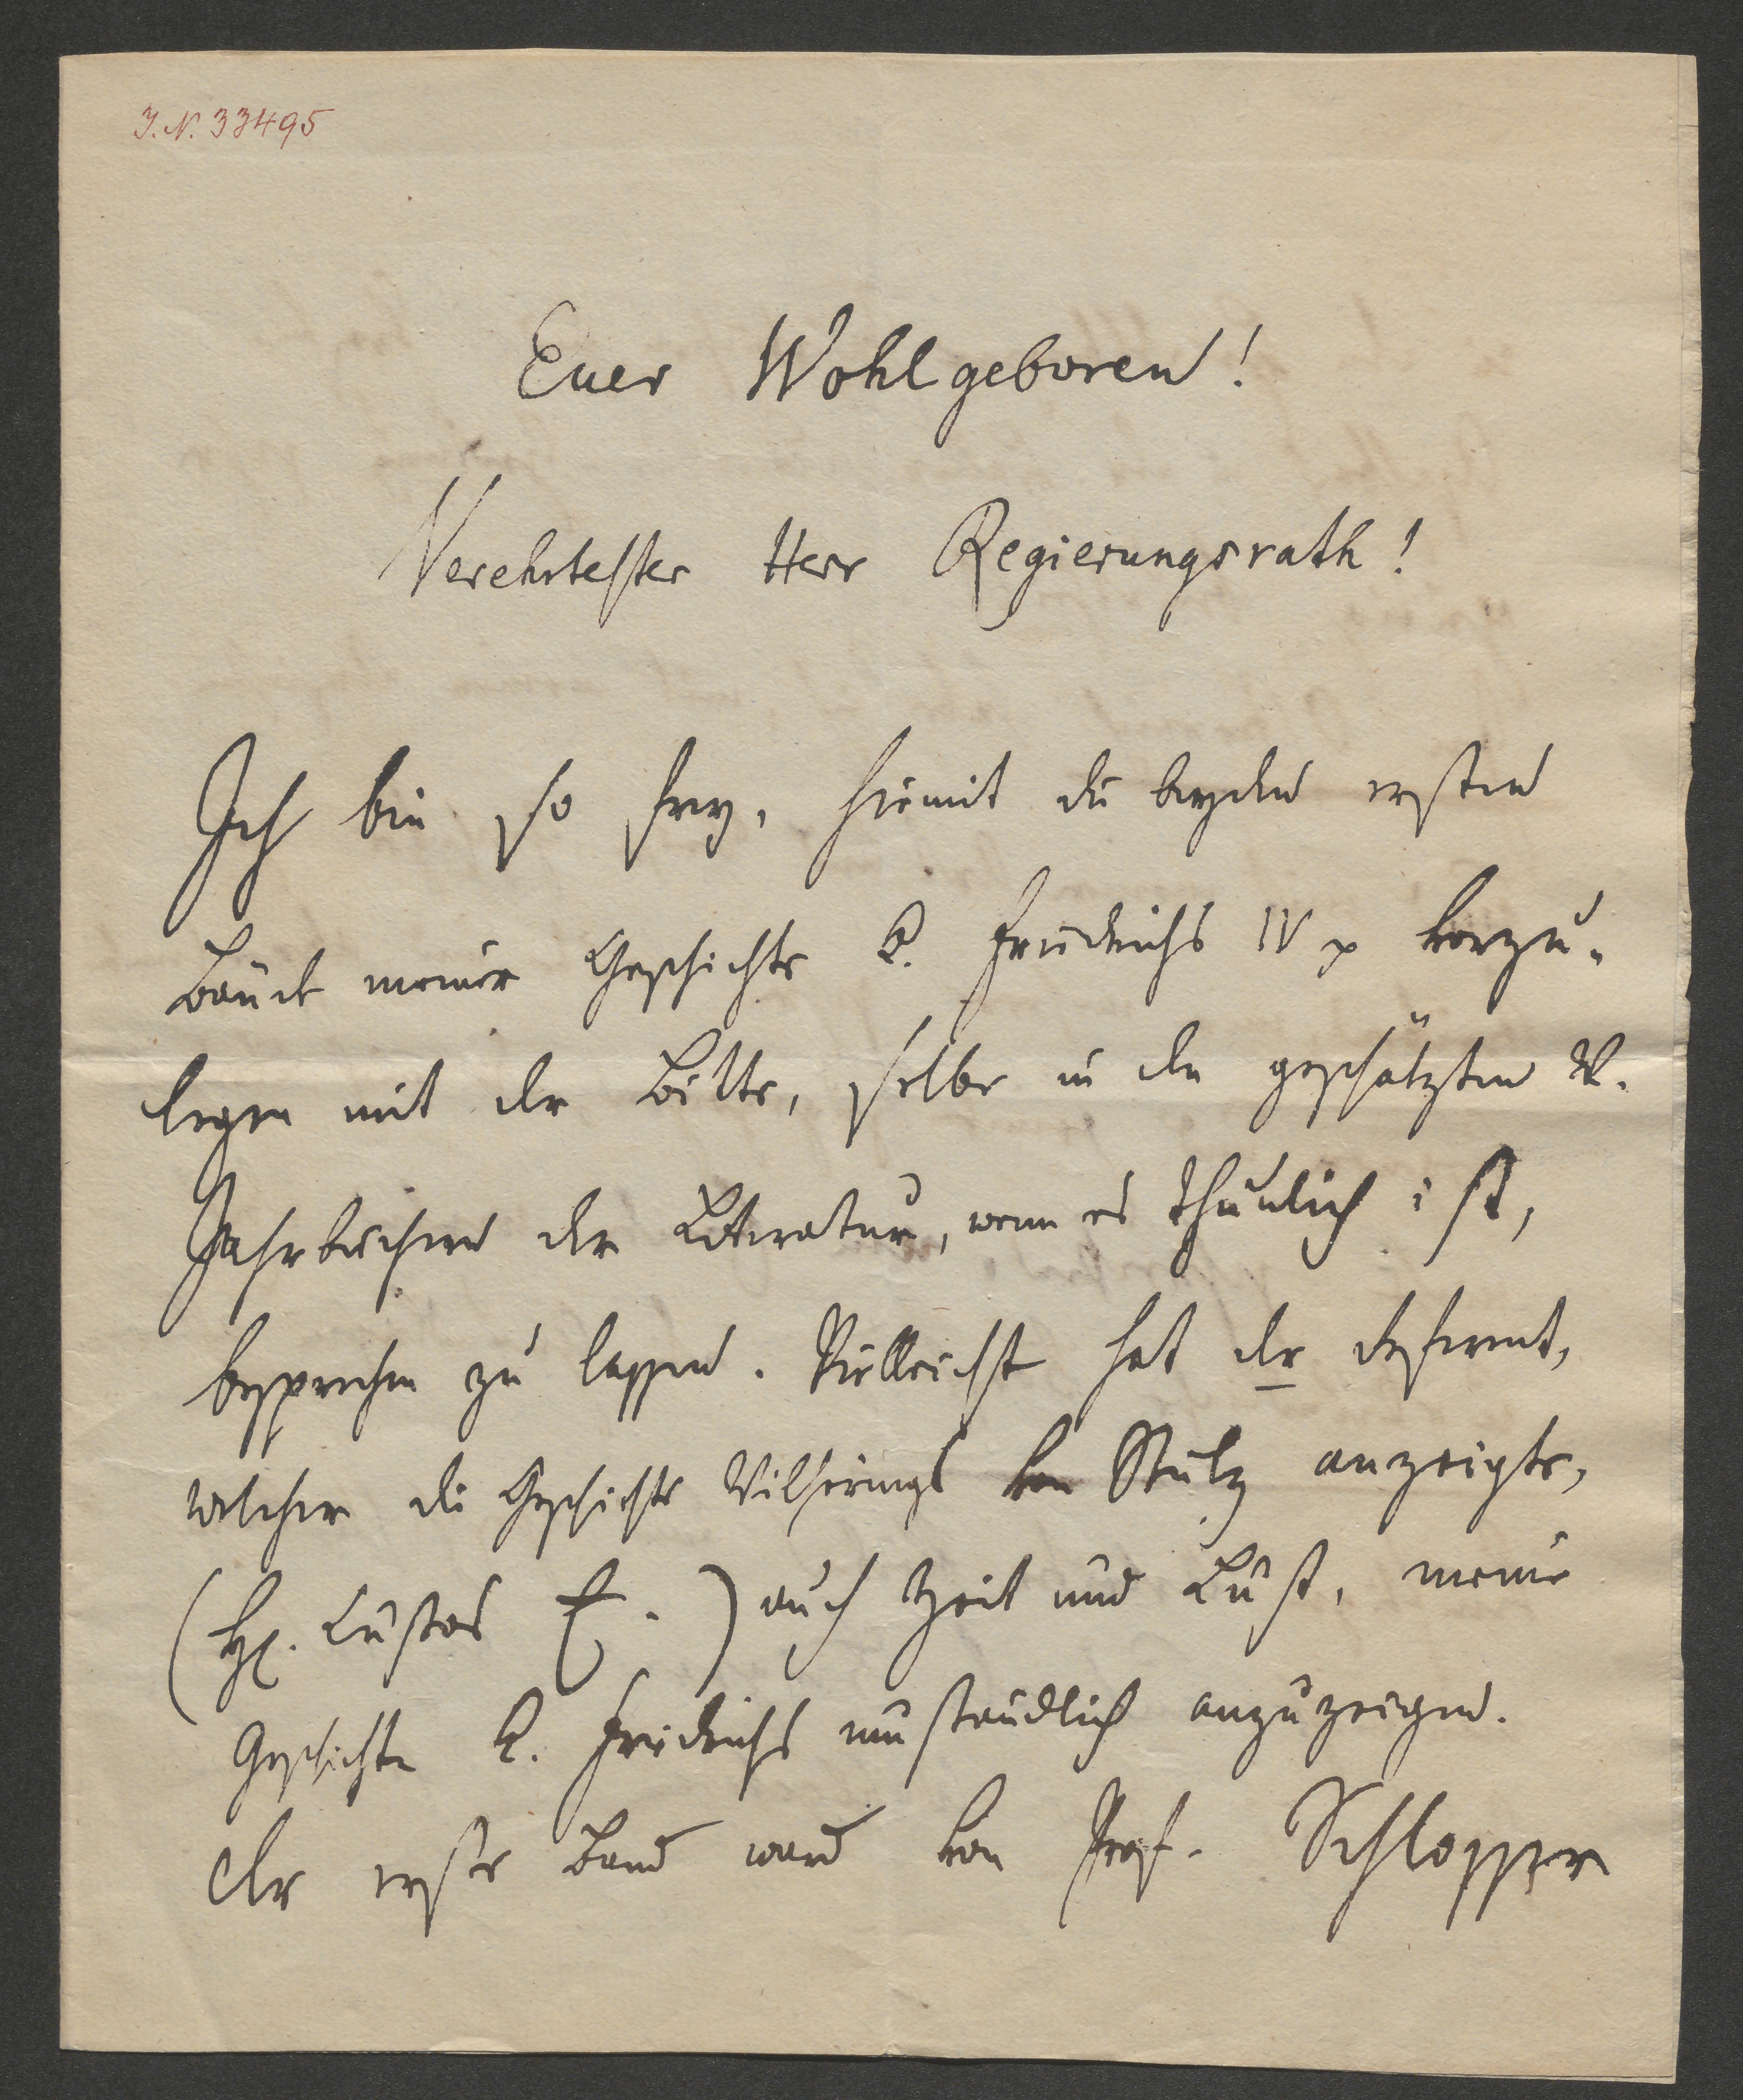 I. N. 33495
Euer Wohlgeboren!
Verehrtester Herr Regierungsrath!
Ich bin so frey, hiemit die beyden ersten
Bände meiner Geschichte K. Friedrichs IV vorzu-
legen mit der Bitte, selbe in den geschätzten W.
Jahrbüchern der Literatur, wenn es thunlich ist,
besprechen zu lassen. Vielleicht hat der Referent,
welcher die Geschichte Wilherings von Stülz anzeigte,
(H. Custos C.) auch Zeit und Lust, meine
Geschichte K. Friedrichs umständlich anzuzeigen.
Der erste Band ward von Prof. Schlosser